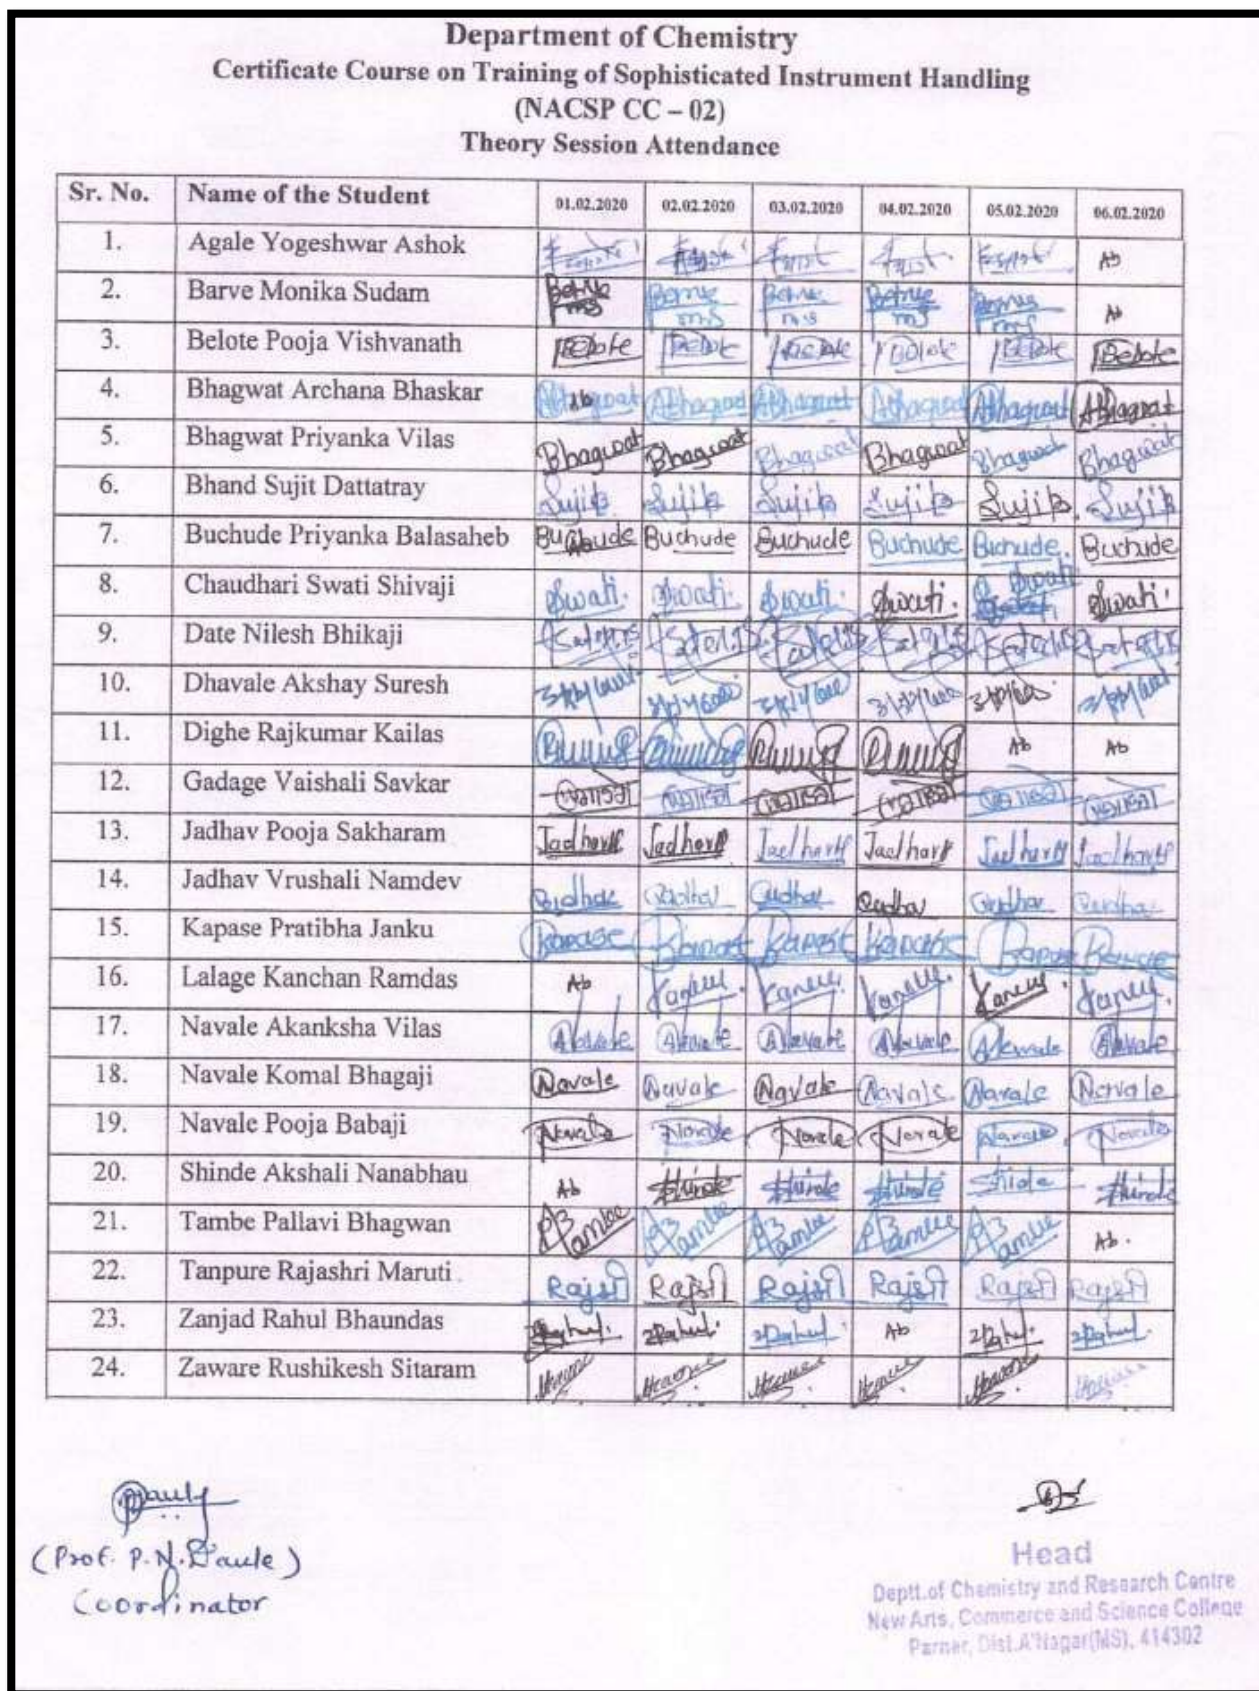 Department of Chemistry
Certificate Course on Training of Sophisticated Instrument Handling
(NACSP CC – 02)
Theory Session Attendance
Sr. No. Name of the Student 01.02.2020 02.02.2020 03.02.2020 04.02.2020 05.02.2020 06.02.2020
1. Agale Yogeshwar Ashok Ab
2. Barve Monika Sudam Barve ms Barve ms Barve ms Barve ms Barve ms Ab
3. Belote Pooja Vishvanath Belote Belote Belote Belote Belote Belote
4. Bhagwat Archana Bhaskar ABhagwat ABhagwat ABhagwat ABhagwat ABhagwat ABhagwat
5. Bhagwat Priyanka Vilas Bhagwat Bhagwat Bhagwat Bhagwat Bhagwat Bhagwat
6. Bhand Sujit Dattatray Sujit Sujit Sujit Sujit Sujit Sujit
7. Buchude Priyanka Balasaheb Buchude Buchude Buchude Buchude Buchude. Buchude
8. Chaudhari Swati Shivaji Swati. Swati. Swati. Swati. Swati Swati.
9. Date Nilesh Bhikaji
10. Dhavale Akshay Suresh
11. Dighe Rajkumar Kailas Ab Ab
12. Gadage Vaishali Savkar
13. Jadhav Pooja Sakharam Jadhav Jadhav Jadhav Jadhav Jadhav Jadhav
14. Jadhav Vrushali Namdev
15. Kapase Pratibha Janku Kapase Kapase Kapase Kapase Kapase Kapase
16. Lalage Kanchan Ramdas Ab
17. Navale Akanksha Vilas
18. Navale Komal Bhagaji Navale Navale Navale Navale Navale Navale
19. Navale Pooja Babaji Navale Navale Navale Navale Navale Navale
20. Shinde Akshali Nanabhau Ab Shinde Shinde Shinde Shinde Shinde
21. Tambe Pallavi Bhagwan Tambe Tambe Tambe Tambe Tambe Ab.
22. Tanpure Rajashri Maruti Rajश्री Rajश्री Rajश्री Rajश्री Rajश्री Rajश्री
23. Zanjad Rahul Bhaundas Rahul. Rahul. Rahul. Ab Rahul. Rahul.
24. Zaware Rushikesh Sitaram
(Prof. P.N. Daule)
Coordinator
Head
Deptt.of Chemistry and Research Centre
New Arts, Commerce and Science College
Parner, Dist.A'Nagar(MS), 414302